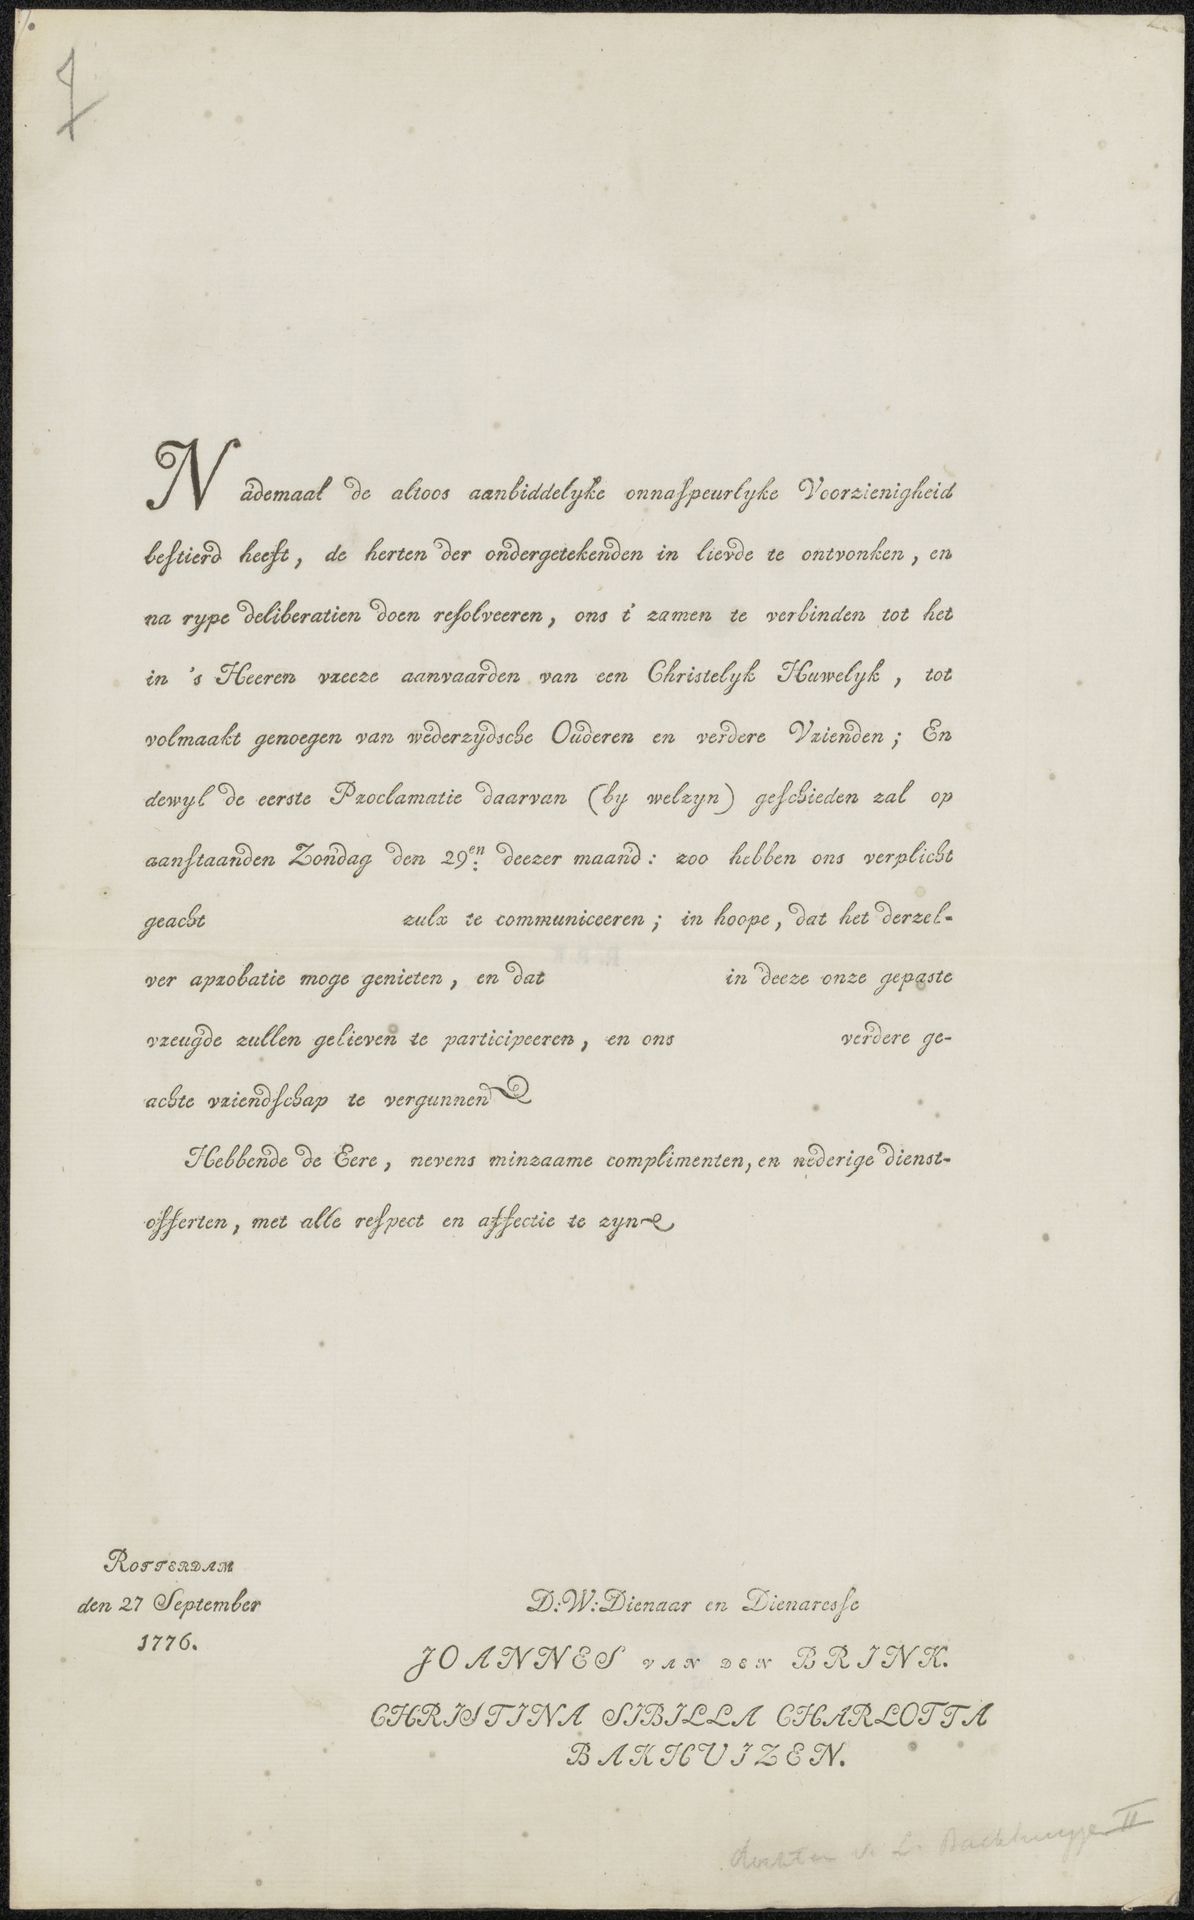 Nademaal de altoos aanbiddelyke onnaspeurlyke Voorzienigheid
bestierd heeft, de herten der ondergetekenden in lievde te ontvonken, en
na rype deliberatien doen resolveeren, ons t' zamen te verbinden tot het
in 's Heeren vreeze aanvaarden van een Christelyk Huwelyk, tot
volmaakt genoegen van wederzydsche Ouderen en verdere Vrienden; En
dewyl de eerste Proclamatie daarvan (by welzyn) geschieden zal op
aanstaanden Zondag den 29en: deezer maand: zoo hebben ons verplicht
geacht zulx te communiceeren; in hoope, dat het derzel-
ver aprobatie moge genieten, en dat in deeze onze gepaste
vreugde zullen gelieven te participeeren, en ons verdere ge-
achte vriendschap te vergunnen
Hebbende de Eere, nevens minzaame complimenten, en nederige dienst-
offerten, met alle respect en affectie te zyn
ROTTERDAM
den 27 September
1776.
D:W:Dienaar en Dienaresse
JOANNES VAN DEN BRINK.
CHRISTINA SIBILLA CHARLOTTA
BAKHUIZEN.
L. Backhuyzen II